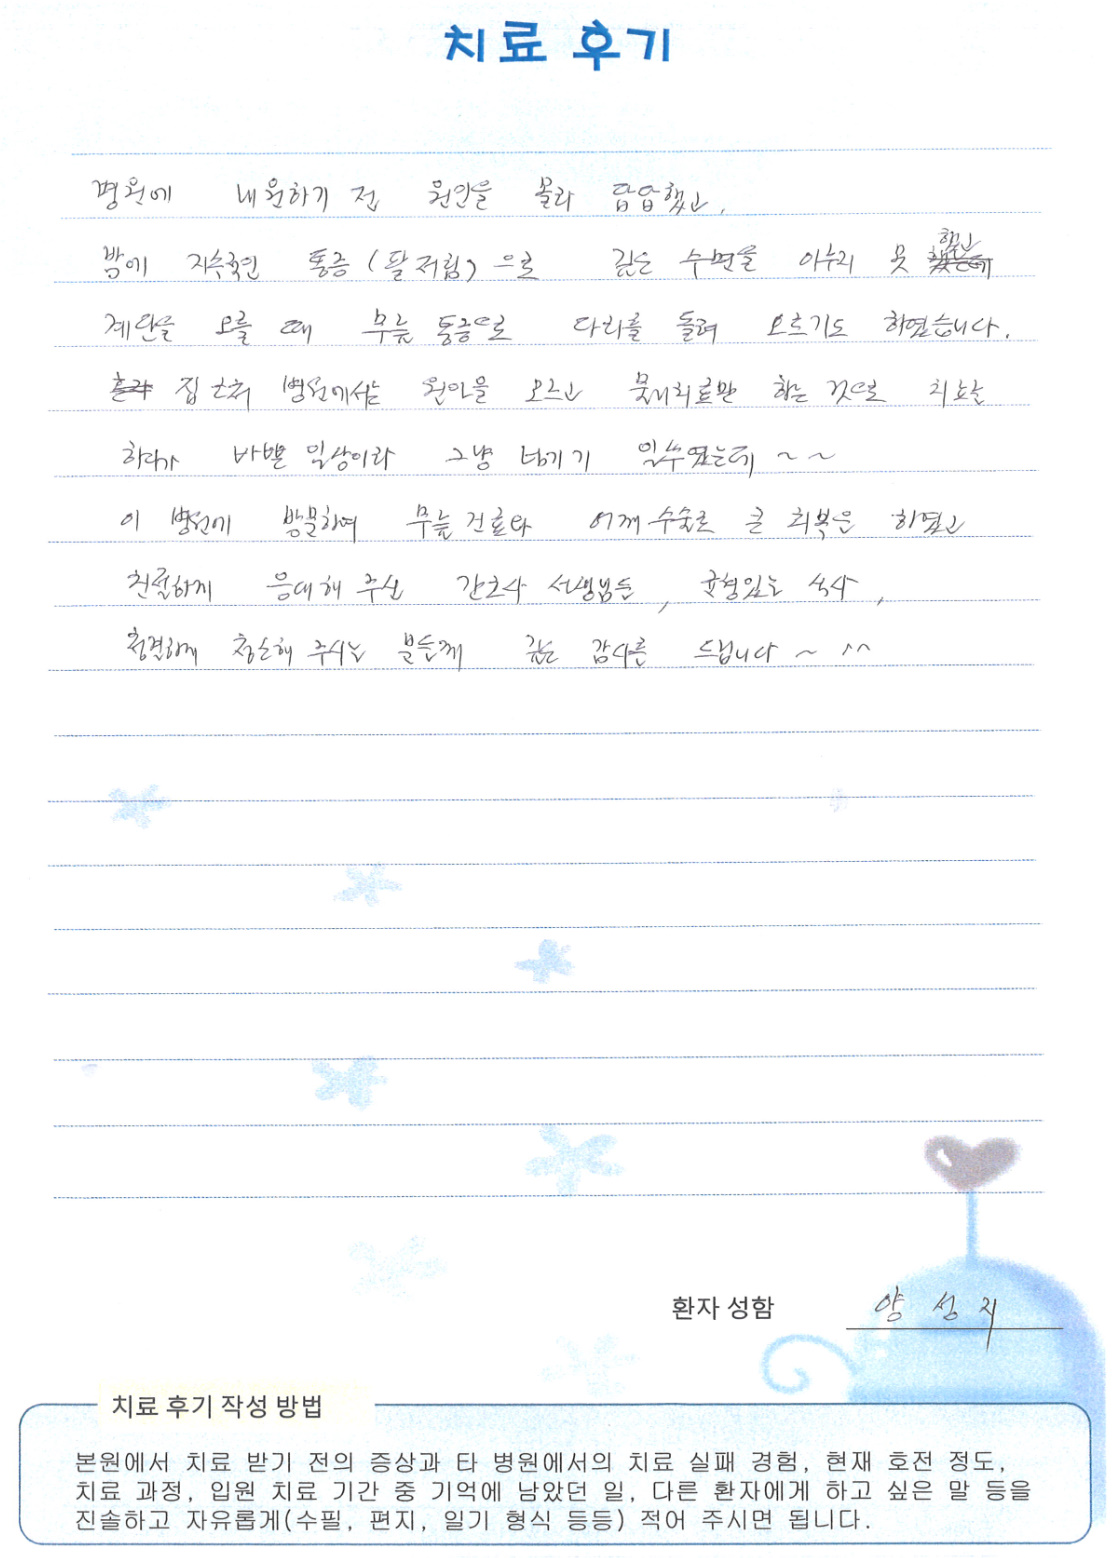 치료 후기
병원에 내원하기 전 원인을 몰라 답답했고,
밤에 지속적인 통증(팔저림)으로 깊은 수면을 이루지 못 했고
계단을 오를 때 무릎 통증으로 다리를 돌려 오르기도 하였습니다.
집 근처 병원에서는 원인을 모르고 물리치료만 하는 것으로 치료는
하다가 바쁜 일상이라 그냥 넘기기 일쑤였는데 ~ ~
이 병원에 방문하여 무릎 건료와 어깨 수술로 큰 회복은 하였고
친절하게 응대해 주신 간호사 선생님들, 균형있는 식사,
청결하게 청소해 주시는 분들께 깊은 감사를 드립니다 ~ ^^
환자 성함 양 성 지
치료 후기 작성 방법
본원에서 치료 받기 전의 증상과 타 병원에서의 치료 실패 경험, 현재 호전 정도,
치료 과정, 입원 치료 기간 중 기억에 남았던 일, 다른 환자에게 하고 싶은 말 등을
진솔하고 자유롭게(수필, 편지, 일기 형식 등등) 적어 주시면 됩니다.